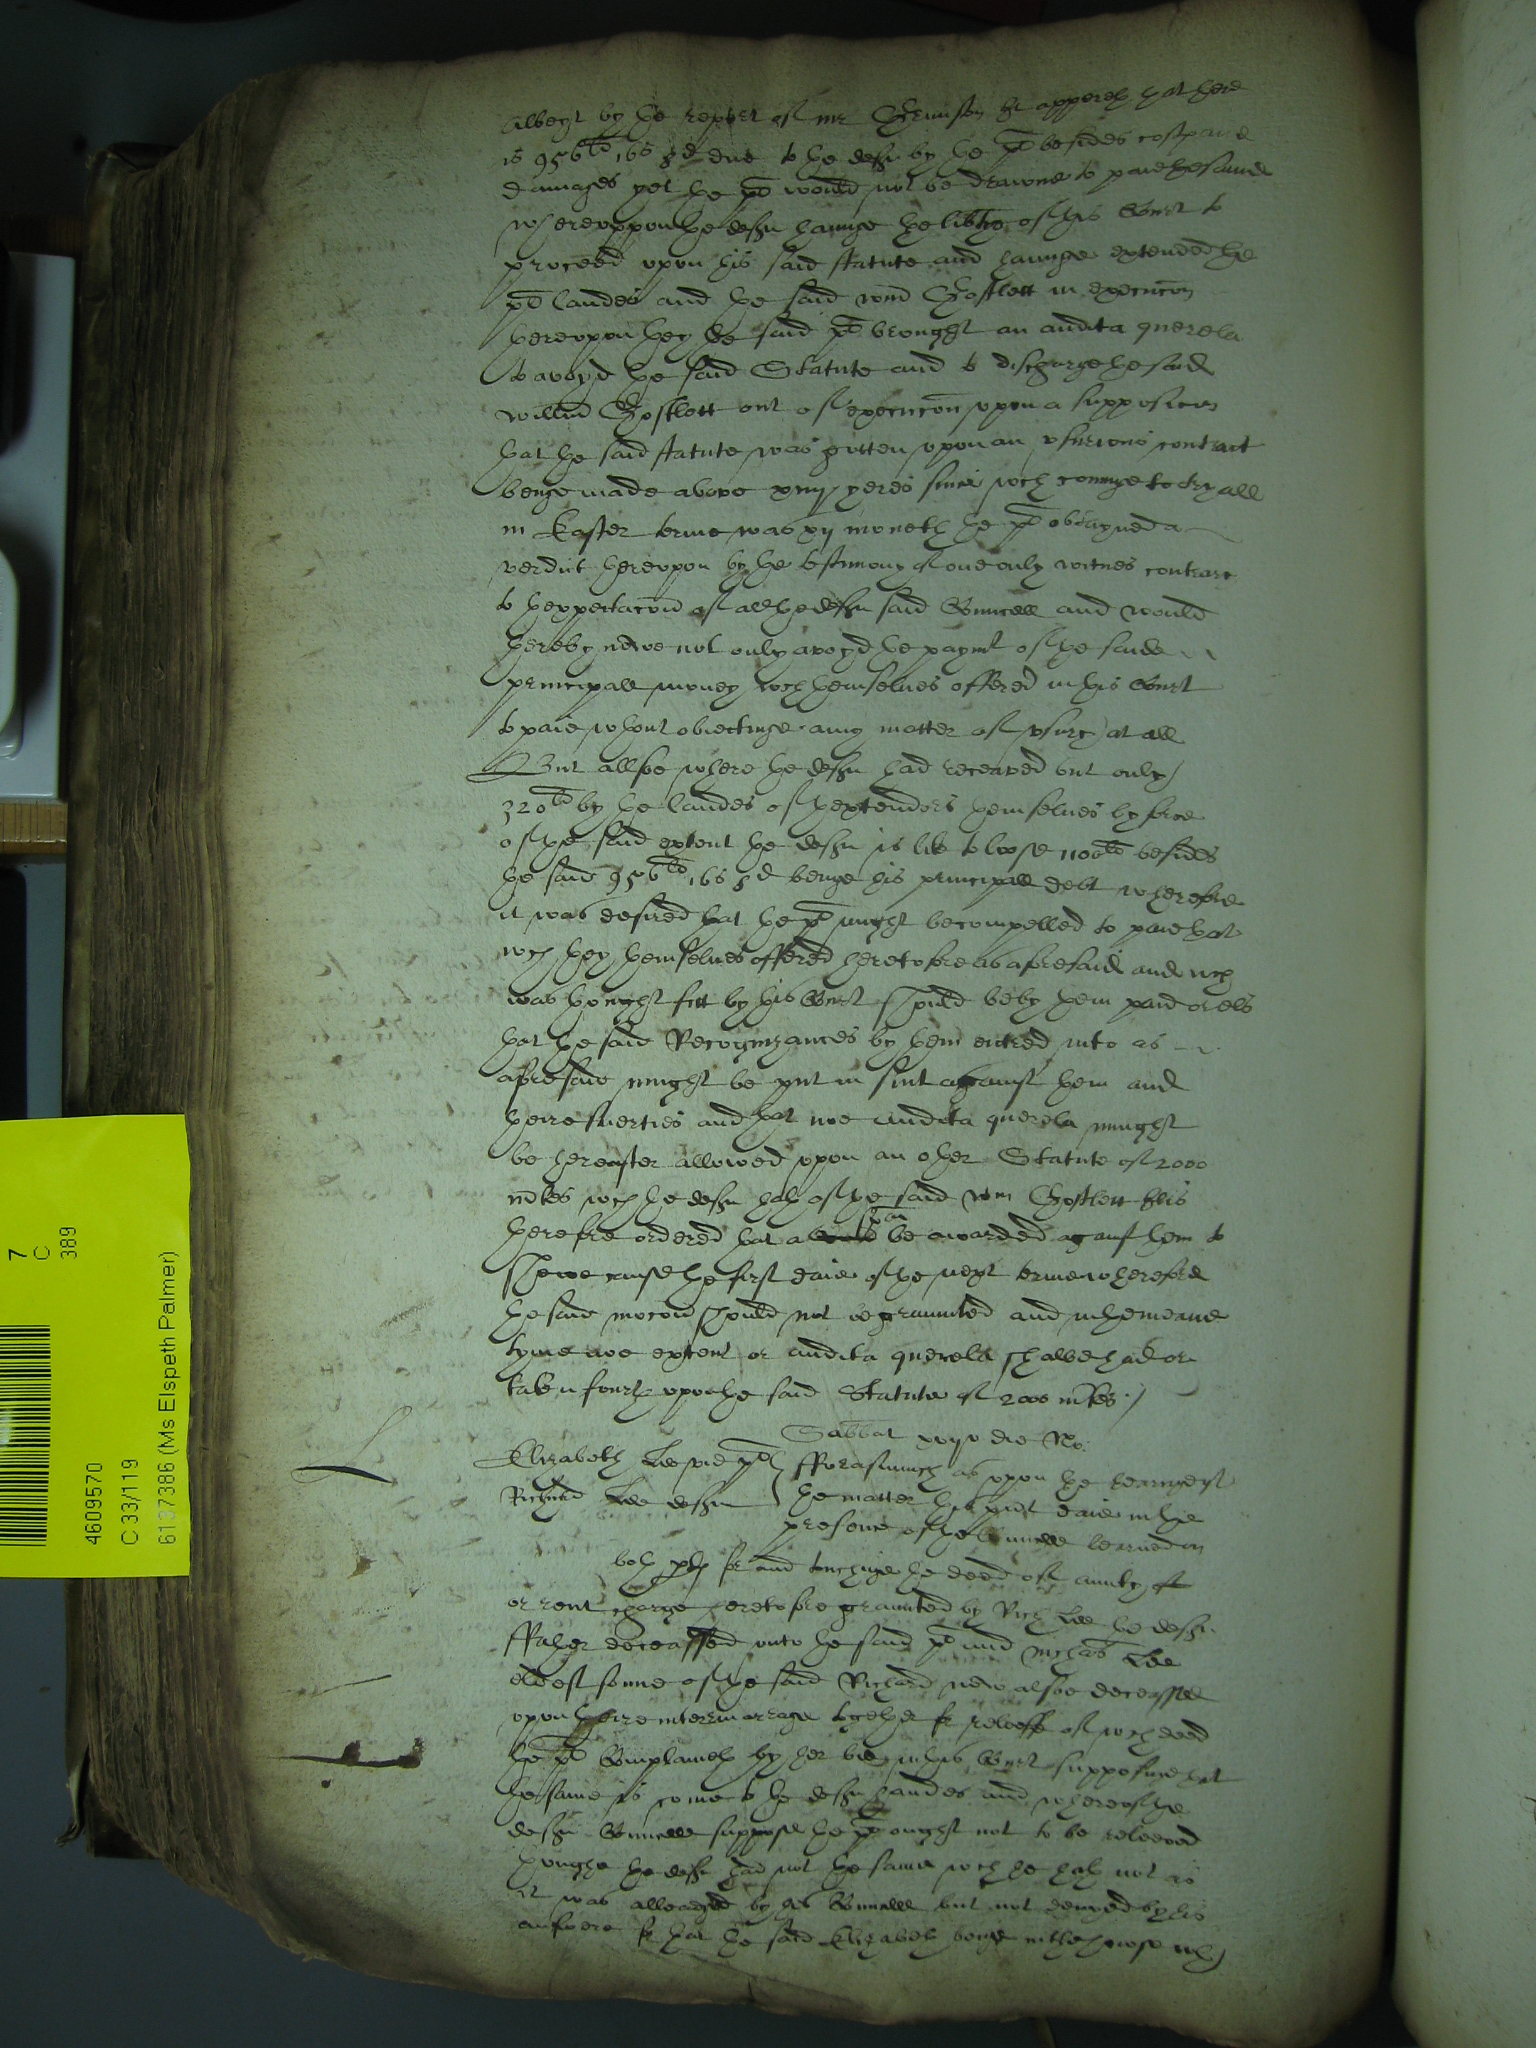 albeyt by the report of mr Grimston yt appereth that there
is 956li 16s 8d due to the deft by the pl besides costs and
damages yet the pl would not be drawne to paie the same
whereuppon the deft havinge the libtie of this Court to
proceed upon his said statute and havinge extended the
pl landes and the said wm Gostlett in execucon
thereupon they the said pl brought an audita querela
to avoyd the said Statute and to discharge the said
willm Gostlett out of execucon upon a supposicon
that the said statute was gotten upon an usurious contract
beinge made above xiiij yeres since wch cominge to tryall
in Easter terme was xij moneth the pl obtayned a
verdict thereupon by the testimony of one only witnes contrary
to thexpectacon of all the deft said Councell and would
thereby nowe not only avoyd the paymt of the saide
principall money wch themselves offered in this Court
to paie wthout obiectinge any matter of usury at all
But allsoe where the deft had receaved but only
320li by the landes of thextendors themselves by force
of the said extent the deft is like to loose 1100li besides
the said 956li 16s 8d beinge his principall debt wherefore
it was desired that the pl might be compelled to paie that
wch they themselves offered heretofore as aforesaid and wch
was thought fitt by this Court should be by them paid or els
that the said Recognizances by them entred into as
aforesaid might be put in suit against them and
theire suerties and that noe audita querela might
be hereafter allowed upon an other Statute of 2000
mkes wch the deft hath of the said wm Gostlett It is
therefore ordered that a spa be awarded against them to
shewe cause the first daie of the next terme wherefore
the said mocon should not be graunted and in the meane
tyme noe extent or audita querela shalbe had or
taken fourth upon the said Statute of 2000 mkes
Sabbat xxvjo die No:
Elizabeth Lee vid pl Fforasmuch as upon the hearinge of
Richard Lee deft the matter this pnt daie in the
presence of the Councell learned on
both pts for and touchinge the deed of annuity
or rent charge heretofore graunted by Rich Lee the deft
ffather deceassed unto the said pl and Nichas Lee
eldest sonne of the said Richard now alsoe deceassed
upon theire intermarriage together for releeffe of wch deed
the pl Complaineth by her bill in this Court supposinge that
the same is come to the deft handes and whereof the
deft Councell suppose the pl ought not to be releeved
though the deft had not the same wch he hath not as
it was alleadged by his Councell but not denyed by his
answere for that the said Elizabeth beinge in the
4609570
C 33/119
6137386 (Ms Elspeth Palmer)
7
C
389